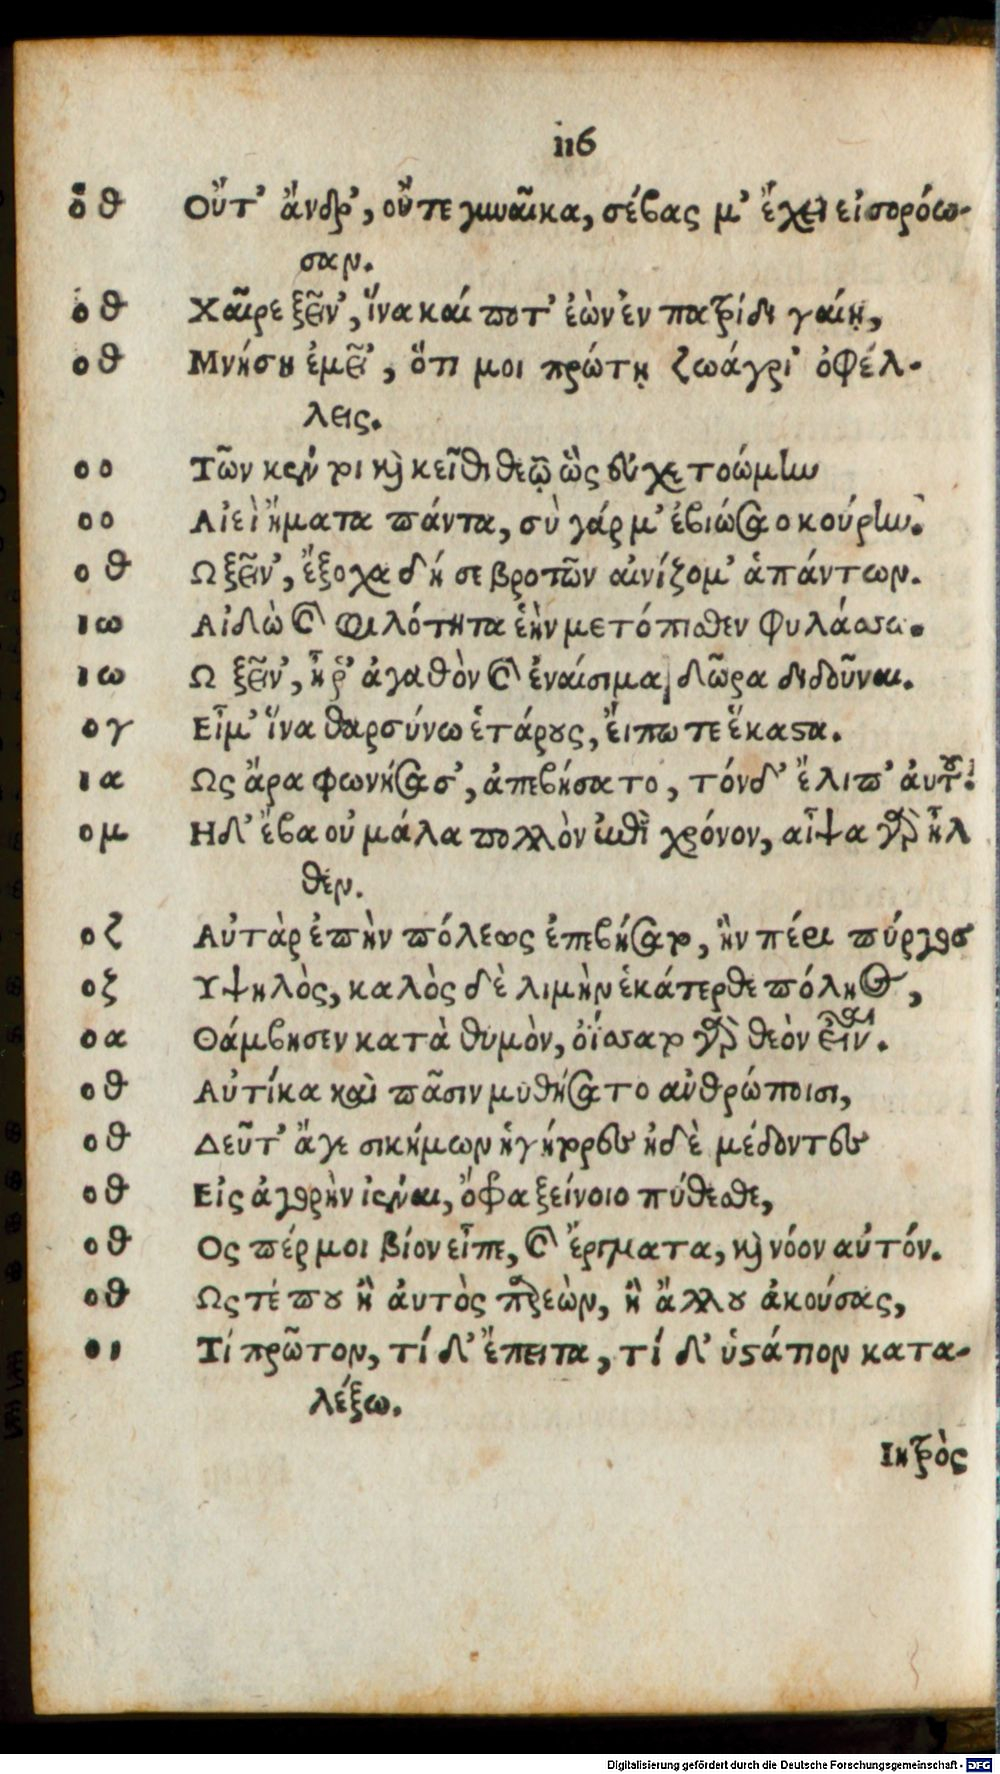 116
ο θ Οὔτ' ἄνδρ', οὔτε γυναῖκα, σέβας μ' ἔχει εἰσορόω-
σαν.
ο θ Χαῖρε ξεῖν', ἵνα καί ποτ' ἐὼν ἐν πατρίδι γαίῃ,
ο θ Μνήσῃ ἐμεῖ', ὅτι μοι πρώτῃ ζωάγρι' ὀφέλ-
λεις.
ο ο Τῶν κέν τοι καὶ κεῖθι θεῷ ὣς εὐχετοώμην
ο ο Αἰεὶ ἤματα πάντα, σὺ γάρ μ' ἐβιώσαο κούρην.
ο θ Ω ξεῖν', ἔξοχα δή σε βροτῶν αἰνίζομ' ἁπάντων.
ι ω Αἰδὼ καὶ φιλότητα ἑὴν μετόπισθεν φυλάσσω.
ι ω Ω ξεῖν', ἦ ῥ' ἀγαθὸν καὶ ἐναίσιμα δῶρα διδοῦναι.
ο γ Εἶμ' ἵνα θαρσύνω ἑτάρους, εἴπω τε ἕκαστα.
ι α Ως ἄρα φωνήσασ', ἀπεβήσατο, τόνδ' ἔλιπ' αὐτοῦ.
ο μ Ηδ' ἔβα οὐ μάλα πολλὸν ἐπὶ χρόνον, αἶψα γὰρ ἦλ
θεν.
ο ζ Αὐτὰρ ἐπὴν πόλεως ἐπεβήσατο, ἣν πέρι πύργος
ο ξ Υψηλὸς, καλὸς δὲ λιμὴν ἑκάτερθε πόληος,
ο α Θάμβησεν κατὰ θυμὸν, ὀΐσατο γὰρ θεὸν εἶναι.
ο θ Αὐτίκα καὶ πᾶσιν μυθήσατο ἀνθρώποισι,
ο θ Δεῦτ' ἄγε σικήμων ἡγήτορες ἠδὲ μέδοντες
ο θ Εἰς ἀγορὴν ἰέναι, ὄφρα ξείνοιο πύθεσθε,
ο θ Ος πέρ μοι βίον εἶπε, καὶ ἔργματα, καὶ νόον αὐτόν.
ο θ Ως τέ που ἢ αὐτὸς παρεὼν, ἢ ἄλλου ἀκούσας,
ο ι Τί πρῶτον, τί δ' ἔπειτα, τί δ' ὑστάτιον κατα-
λέξω.
Ιητρὸς
Digitalisierung gefördert durch die Deutsche Forschungsgemeinschaft - DFG